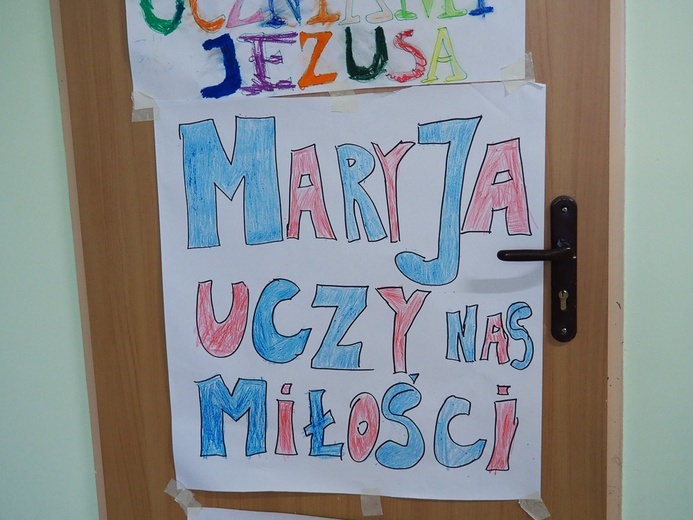 UCZNIAMI
JEZUSA
MARYJA
UCZY NAS
MiŁOŚCi